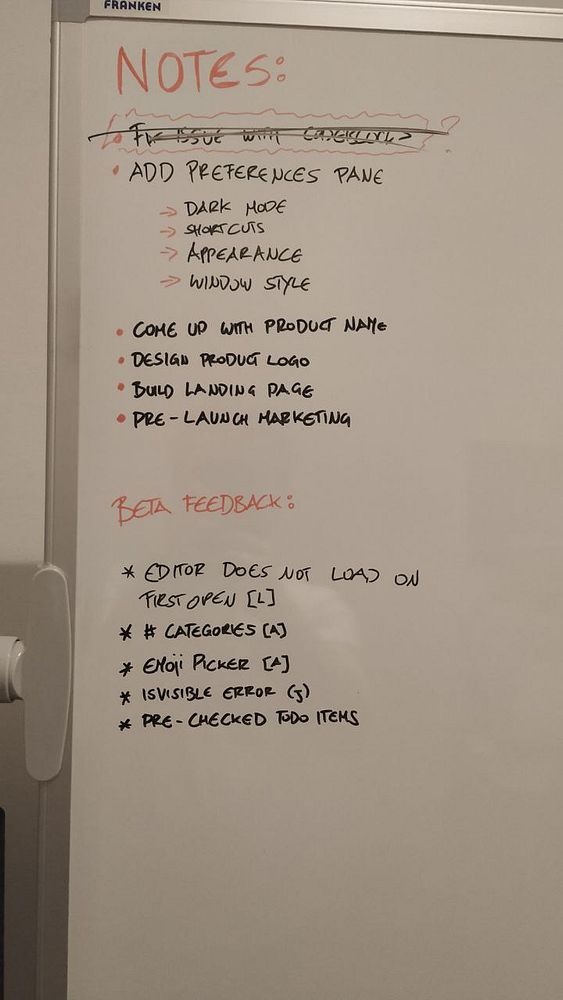 FRANKEN
NOTES:
• FIX ISSUE WITH ?
• ADD PREFERENCES PANE
→ DARK MODE
→ SHORTCUTS
→ APPEARANCE
→ WINDOW STYLE
• COME UP WITH PRODUCT NAME
• DESIGN PRODUCT LOGO
• BUILD LANDING PAGE
• PRE-LAUNCH MARKETING
BETA FEEDBACK:
* EDITOR DOES NOT LOAD ON
FIRST OPEN [L]
* # CATEGORIES [A]
* EMOJI PICKER [A]
* ISVISIBLE ERROR (J)
* PRE-CHECKED TODO ITEMS